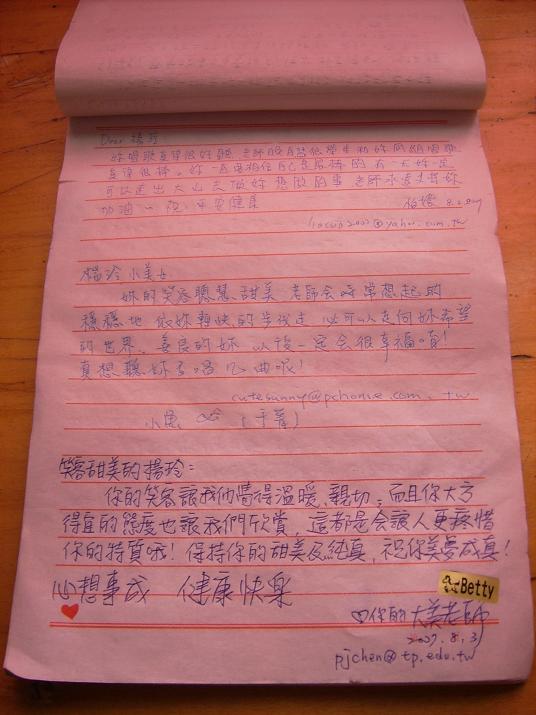 Dear 楊玲
妳唱歌真得很好聽 老師
真得很棒。妳一直要相信自己是最棒的 有一天妳一定
可以走出大山去做妳想做的事 老師永遠支持妳
加油 祝 平安健康
@yahoo.com.tw
楊玲小美女
妳的笑容聰慧甜美 老師会時常想起的
穩穩地 依妳輕快的步伐走 必可以走向妳希望
的世界。善良的妳 以後一定会很幸福唷!
真想聽妳多唱几曲呢!
cutesunny@pchome.com.tw
小魚
笑容甜美的楊玲:
你的笑容讓我們覺得溫暖、親切,而且你大方
得宜的態度也讓我們欣賞,這都是会讓人更疼惜
你的特質哦!保持你的甜美及純真,祝你美夢成真!
心想事成 健康快樂
Betty
♡你的大美老師
2007.8.3
pjchen@tp.edu.tw